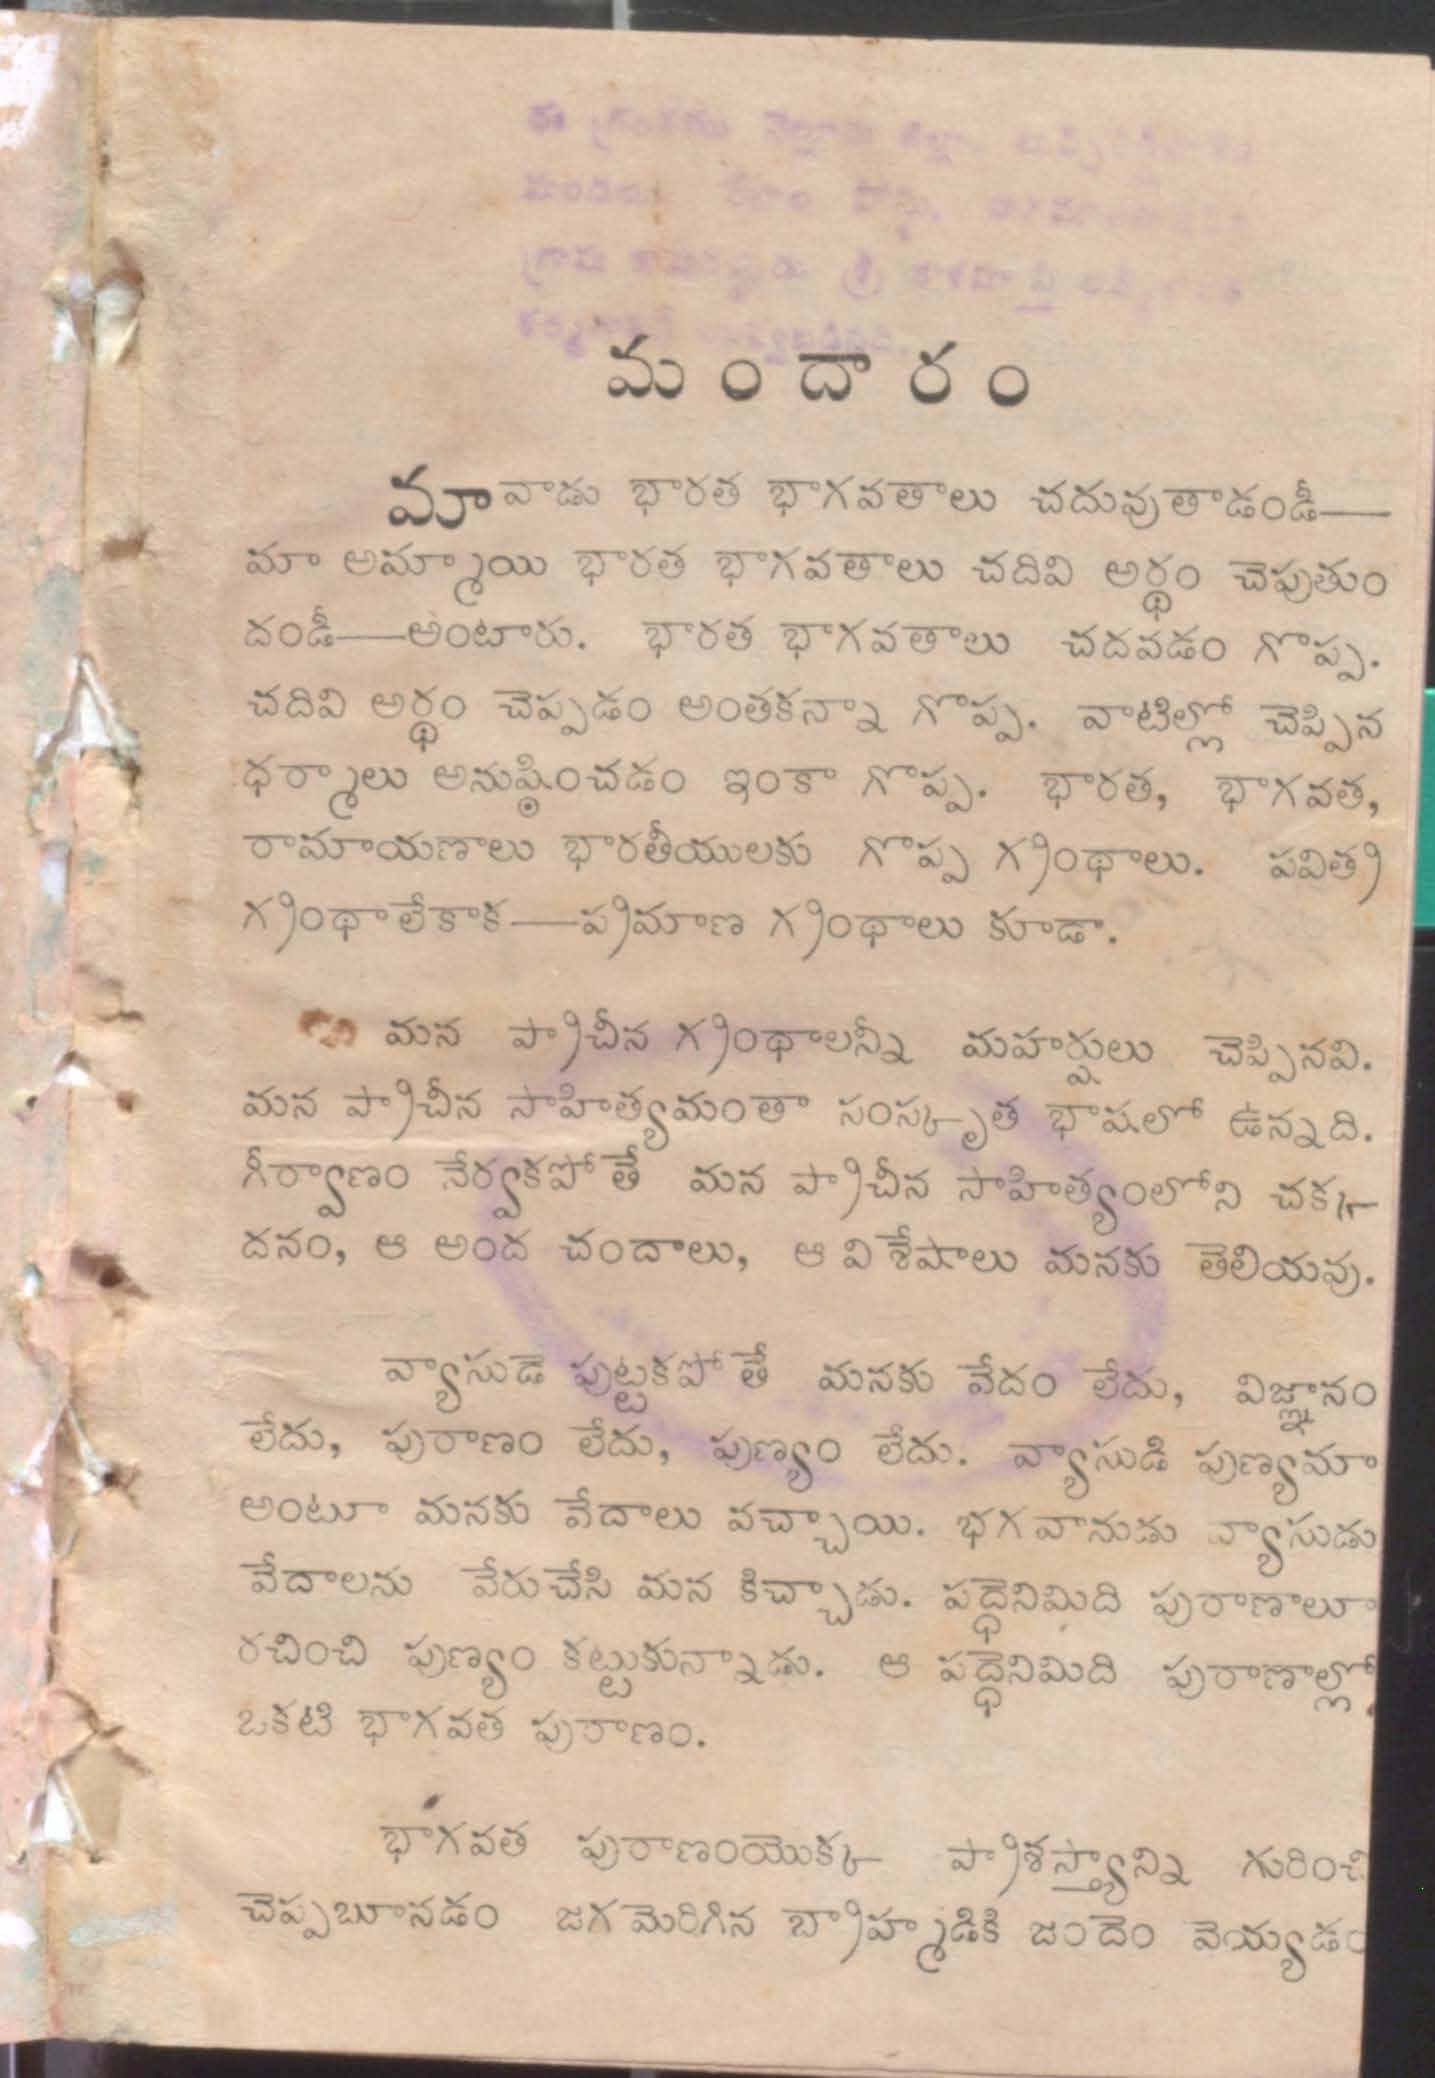 మందారం
మావాడు భారత భాగవతాలు చదువుతాడండీ—
మా అమ్మాయి భారత భాగవతాలు చదివి అర్థం చెపుతుం
దండీ—అంటారు. భారత భాగవతాలు చదవడం గొప్ప.
చదివి అర్థం చెప్పడం అంతకన్నా గొప్ప. వాటిల్లో చెప్పిన
ధర్మాలు అనుష్ఠించడం ఇంకా గొప్ప. భారత, భాగవత,
రామాయణాలు భారతీయులకు గొప్ప గ్రంథాలు. పవిత్ర
గ్రంథాలేకాక—ప్రమాణ గ్రంథాలు కూడా.
మన ప్రాచీన గ్రంథాలన్నీ మహర్షులు చెప్పినవి.
మన ప్రాచీన సాహిత్యమంతా సంస్కృత భాషలో ఉన్నది.
గీర్వాణం నేర్వకపోతే మన ప్రాచీన సాహిత్యంలోని చక్క
దనం, ఆ అంద చందాలు, ఆ విశేషాలు మనకు తెలియవు.
వ్యాసుడె పుట్టకపోతే మనకు వేదం లేదు, విజ్ఞానం
లేదు, పురాణం లేదు, పుణ్యం లేదు. వ్యాసుడి పుణ్యమా
అంటూ మనకు వేదాలు వచ్చాయి. భగవానుడు వ్యాసుడు
వేదాలను వేరుచేసి మన కిచ్చాడు. పద్ధెనిమిది పురాణాలూ
రచించి పుణ్యం కట్టుకున్నాడు. ఆ పద్ధెనిమిది పురాణాల్లో
ఒకటి భాగవత పురాణం.
భాగవత పురాణంయొక్క ప్రాశస్త్యాన్ని గురించి
చెప్పబూనడం జగమెరిగిన బ్రాహ్మడికి జందెం వెయ్యడం